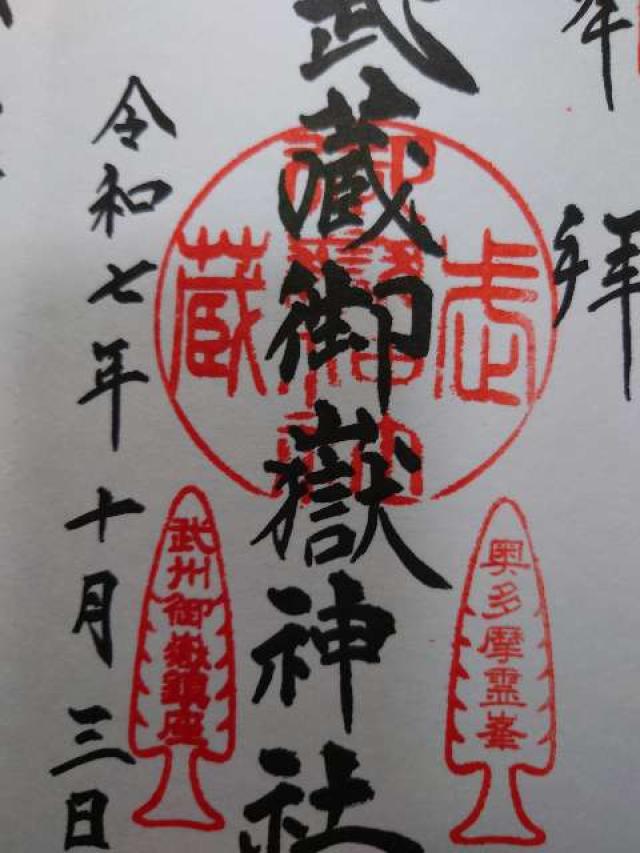 奉拝
武蔵御嶽神社
令和七年十月三日
武蔵
奥多摩霊峯
武州御嶽鎮座